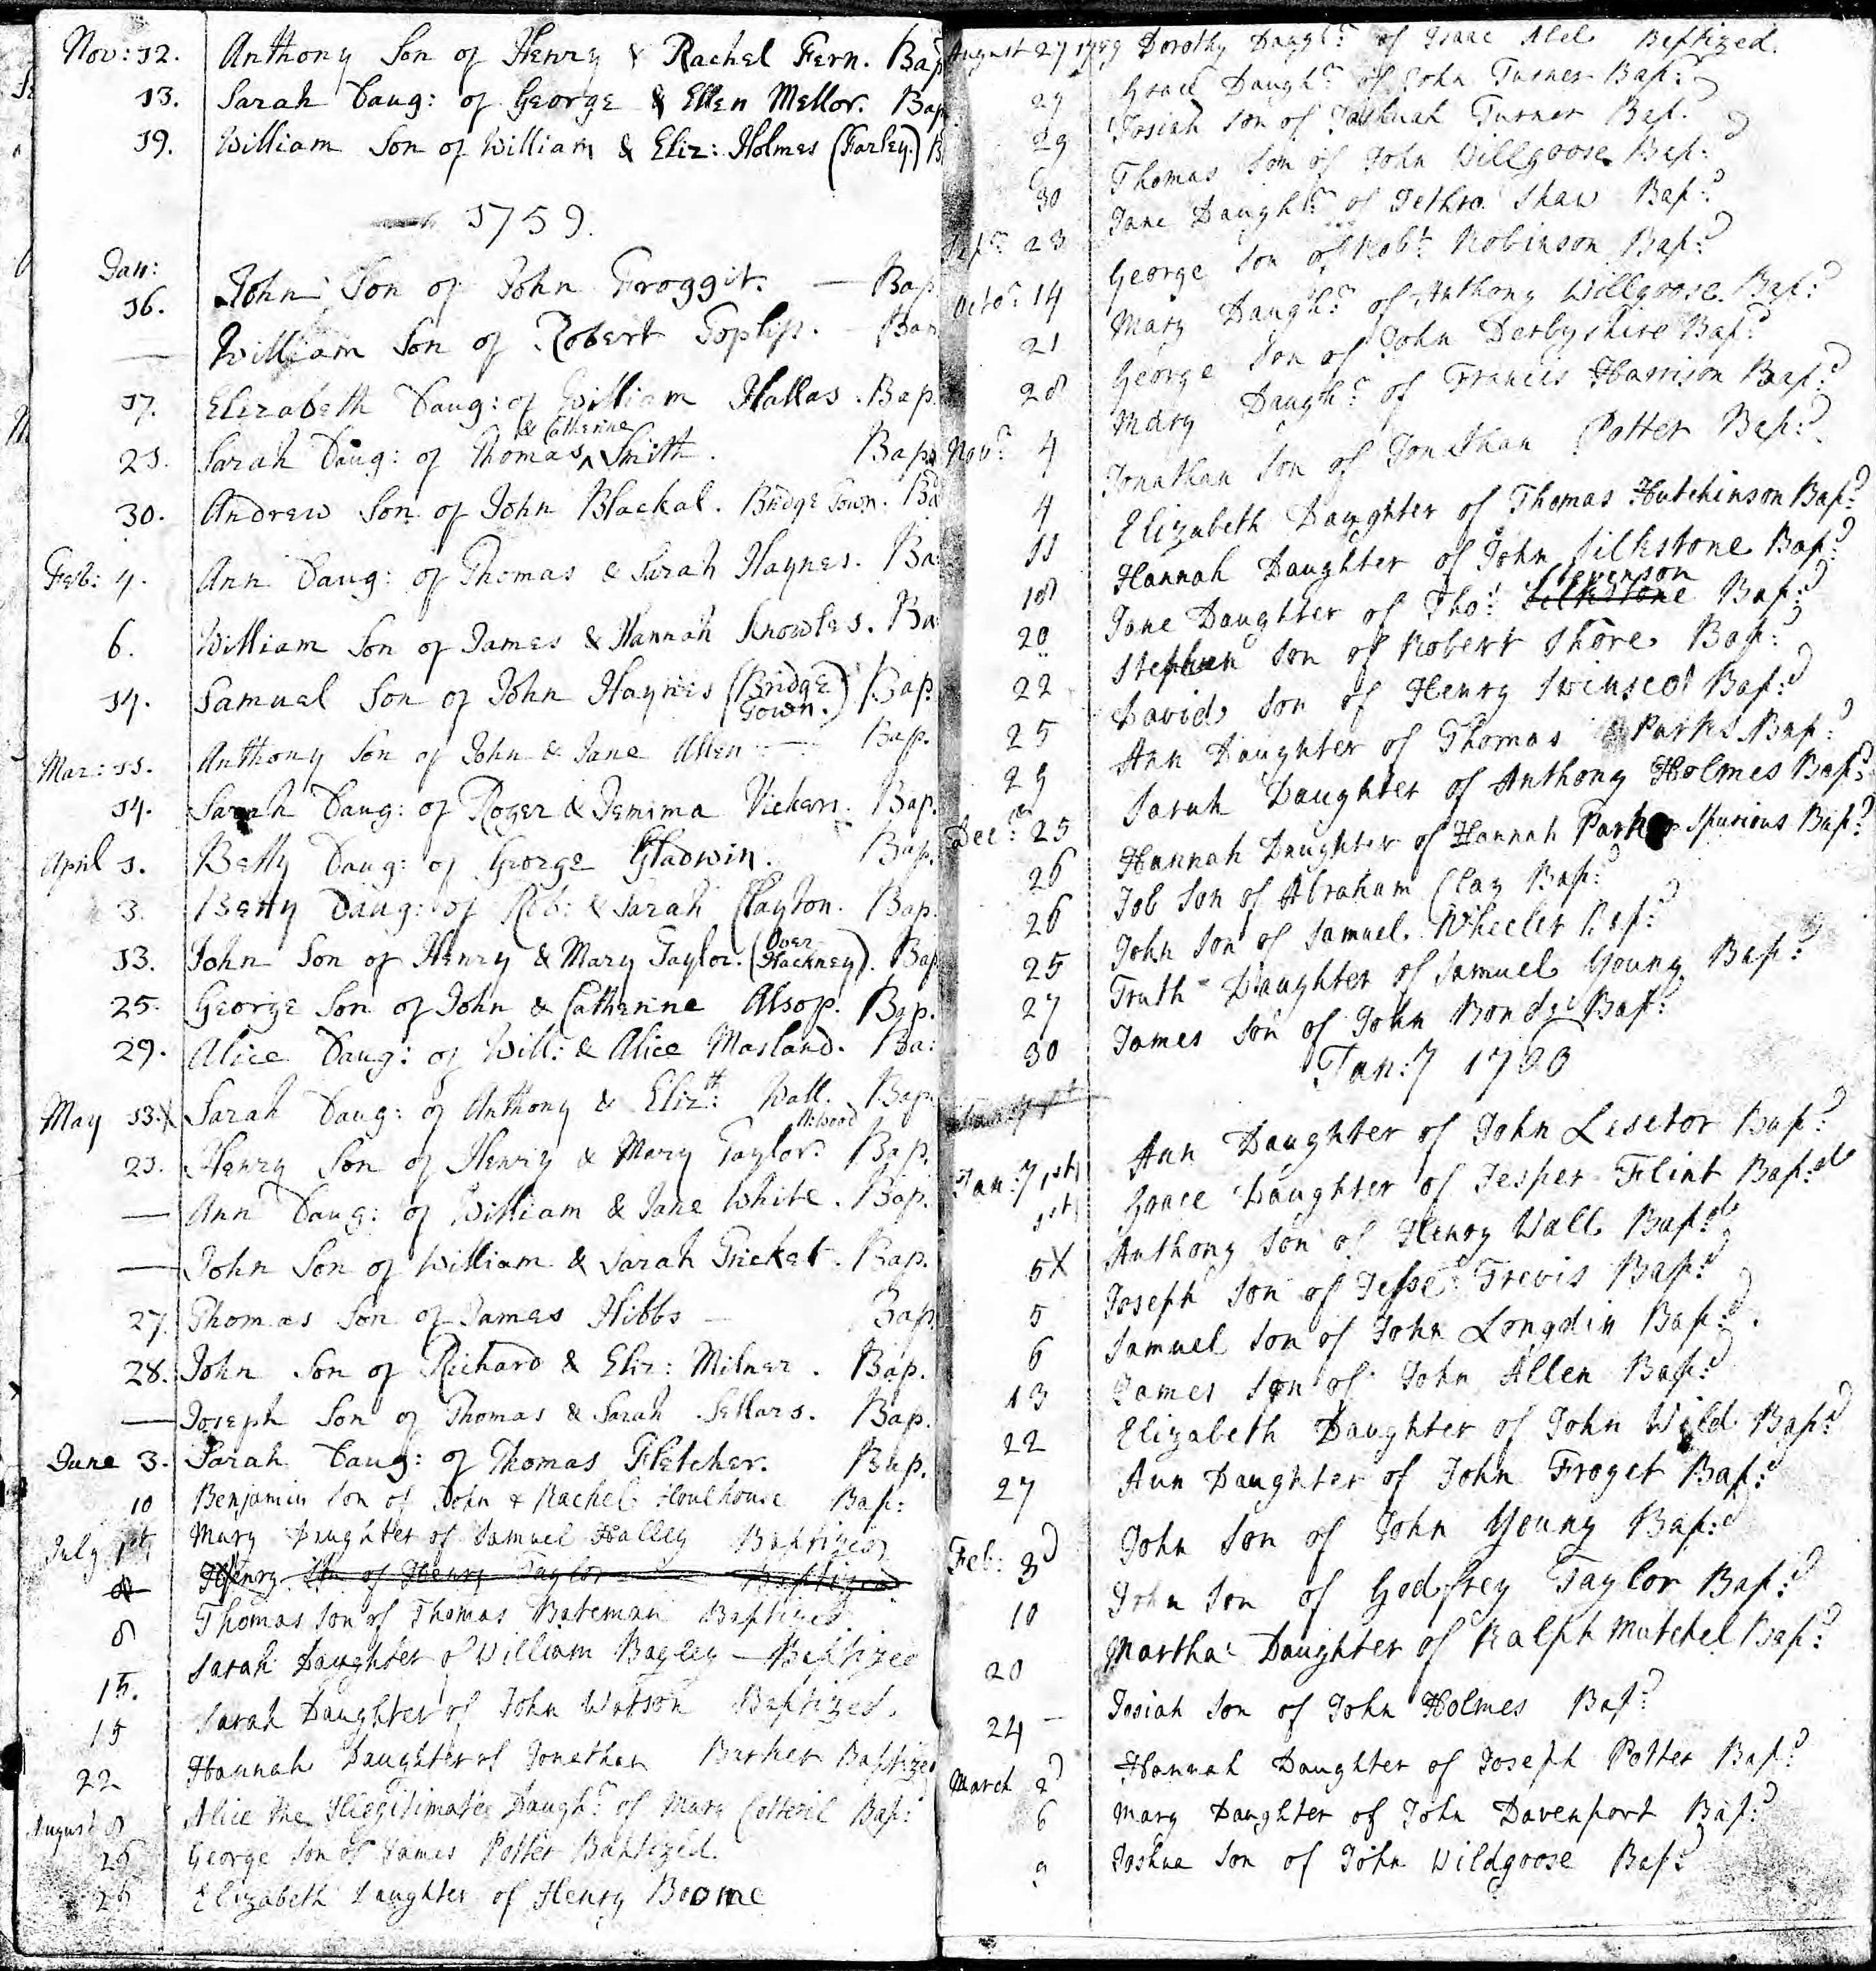 Nov: 12. Anthony Son of Henry & Rachel Fern. Bap
13. Sarah Daug: of George & Ellen Mellor. Bap
19. William Son of William & Eliz: Holmes (Farley.) B
1759.
Jan:
16. John Son of John Froggit. — Bap
— William Son of Robert Toplis. — Bap
17. Elizabeth Daug: of William Hallas. Bap.
& Catherine
21. Sarah Daug: of Thomas ^ Smith. Bap
30. Andrew Son of John Blackal. Bridge Town. Ba
Feb: 4. Ann Daug: of Thomas & Sarah Haynes. Ba:
6. William Son of James & Hannah Knowles. Ba
14. Samuel Son of John Haynes (Bridge Town.) Bap.
Mar: 11. Anthony Son of John & Jane Allen — Bap.
14. Sarah Daug: of Roger & Jemima Vickers. Bap.
April 1. Betty Daug: of George Gladwin. Bap.
3. Betty Daug: of Rob: & Sarah Clayton. Bap.
13. John Son of Henry & Mary Taylor. (Over Hackney). Bap
25. George Son of John & Catherine Alsop. Bap.
29. Alice Daug: of Will: & Alice Masland. Ba:
May 13. X Sarah Daug: of Anthony & Eliz:th Wall. Bap.
21. Henry Son of Henry & Mary Taylor. Bap.
— Ann Daug: of William & Jane White. Bap.
— John Son of William & Sarah Tricket. Bap.
27. Thomas Son of James Hibbs — Bap.
28. John Son of Richard & Eliz: Milner. Bap.
— Joseph Son of Thomas & Sarah Sellars. Bap.
June 3. Sarah Daug: of Thomas Fletcher. Bap.
10 Benjamin Son of John & Rachel Houlhouse Bap:
July 1st Mary Daughter of Samuel Halley Baptized
Henry Son of Henry Taylor Baptized
8 Thomas Son of Thomas Bateman Baptized
15. Sarah Daughter of William Bagley — Baptized
15 Sarah Daughter of John Watson Baptized.
22 Hannah Daughter of Jonathan Barker Baptized
August 8 Alice the Illegitimate Daugh:r of Mary Cotteril Bap:
26 George Son of James Potter Baptized.
26 Elizabeth Daughter of Henry Boome
August 27 1759 Dorothy Daugh:r of Isaac Abel Baptized.
29 Grace Daugh:r of John Turner Bap:d
29 Josiah Son of Joshuah Turner Bap:d
30 Thomas Son of John Willgoose Bap:d
Jane Daugh:r of Jethro Shaw Bap:d
Sep:r 23 George Son of Rob:t Robinson Bap:d
Octo:r 14 Mary Daugh:r of Anthony Willgoose Bap:d
21 George Son of John Derbyshire Bap:d
28 Mary Daugh:r of Francis Harrison Bap:d
Nov:r 4 Jonathan Son of Jonathan Potter Bap:d
4 Elizabeth Daughter of Thomas Hutchinson Bap:d
11 Hannah Daughter of John Silkstone Bap:d
Stevenson
18 Jane Daughter of Tho:s Silkstone Bap:d
20 Stephen Son of Robert Shore Bap:d
22 David Son of Henry Swinscot Bap:d
25 Ann Daughter of Thomas Parks Bap:d
29 Sarah Daughter of Anthony Holmes Bap:d
Dec:r 25 Hannah Daughter of Hannah Parker Spurious Bap:d
26 Job Son of Abraham Clay Bap:d
26 John Son of Samuel Wheeler Bap:d
25 Truth Daughter of Samuel Young Bap:d
27
30 James Son of John Bond Bap:d
Jan:y 1760
Jan:y 1st Ann Daughter of John Lesetor Bap:d
1st Grace Daughter of Jesper Flint Bap:d
5 X Anthony Son of Henry Wall Bap:d
5 Joseph Son of Jesse Trevis Bap:d
6 Samuel Son of John Longdin Bap:d
13 James Son of John Allen Bap:d
22 Elizabeth Daughter of John Wild Bap:d
27 Ann Daughter of John Froget Bap:d
Feb: 3d John Son of John Young Bap:d
10 John Son of Godfrey Taylor Bap:d
20 Martha Daughter of Ralph Mutchel Bap:d
24 Josiah Son of John Holmes Bap:d
March 2d Hannah Daughter of Joseph Potter Bap:d
6 Mary Daughter of John Davenport Bap:d
9 Joshua Son of John Wildgoose Bap:d